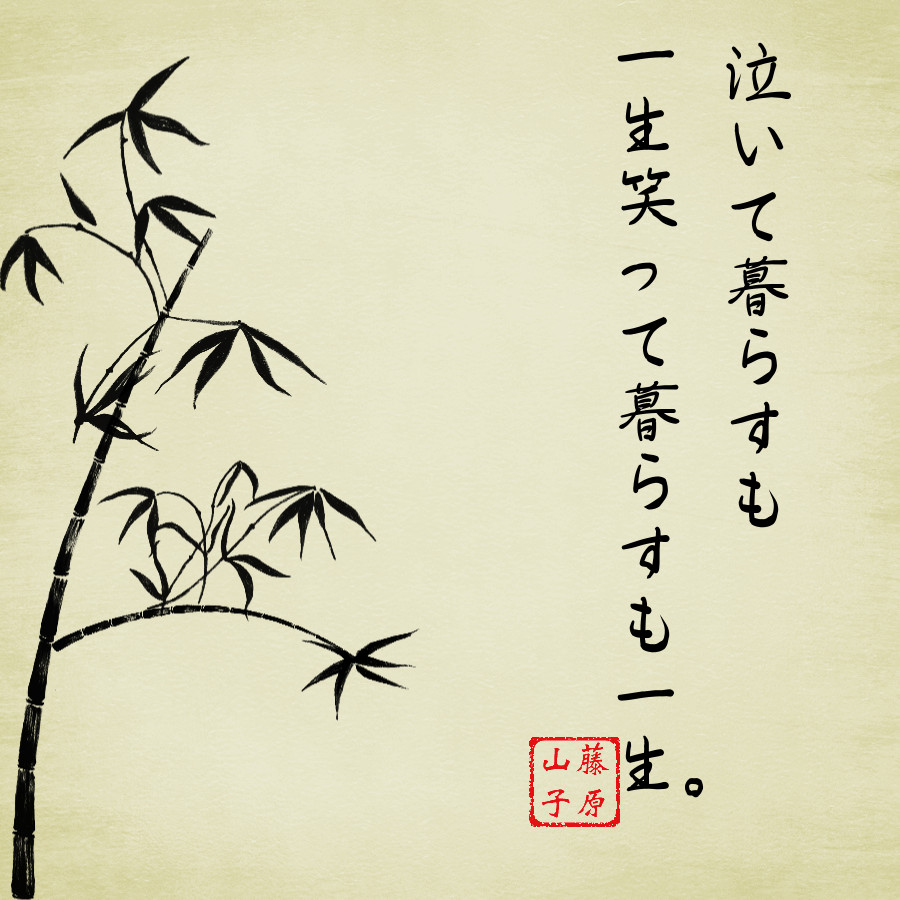 泣いて暮らすも
一生笑って暮らすも一生。
藤原
山子